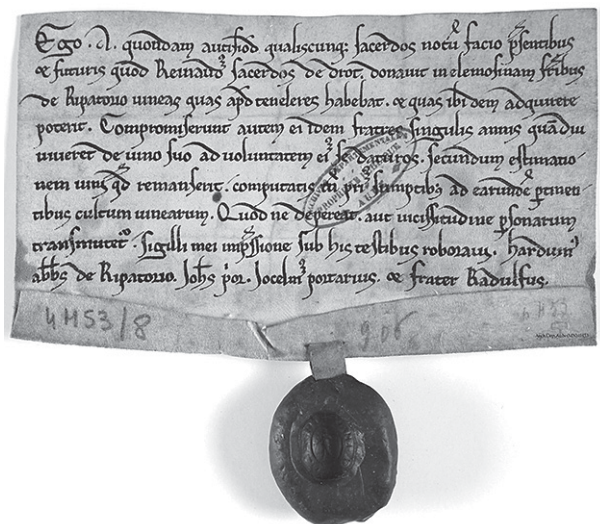 Ego . A. quondam autisiod qualiscunq; sacerdos notū facio p̄sentibus
& futuris quod Reinaudꝰ sacerdos de drot. donauit in elemosinam fr̄ibus
de Ripatorio uineas quas apd teneleres habebat. & quas ibi dem adquirere
poterit. Compromiserunt autem ei idem fratres singulis annis quādiu
uiueret de uino suo ad uoluntatem eiꝰ secundum estimatio-
nem uini qd remanserit. computatis priꝰ sumptibꝰ ad
tibus cultum uinearum. Quod ne depereat. aut uicissitudine p̱sonarum
transmutetᷣ. Sigilli mei imp̄ssione sub his testibus roboraui. harduinꝰ
abb̄s de Ripatorio. Joh̄s p̄or. Jocelinꝰ portarius. & frater Radulfus.
ARCHIVES DEPARTEMENTALES
PROPRIETE PUBLIQUE
AUBE
4H53/8
906